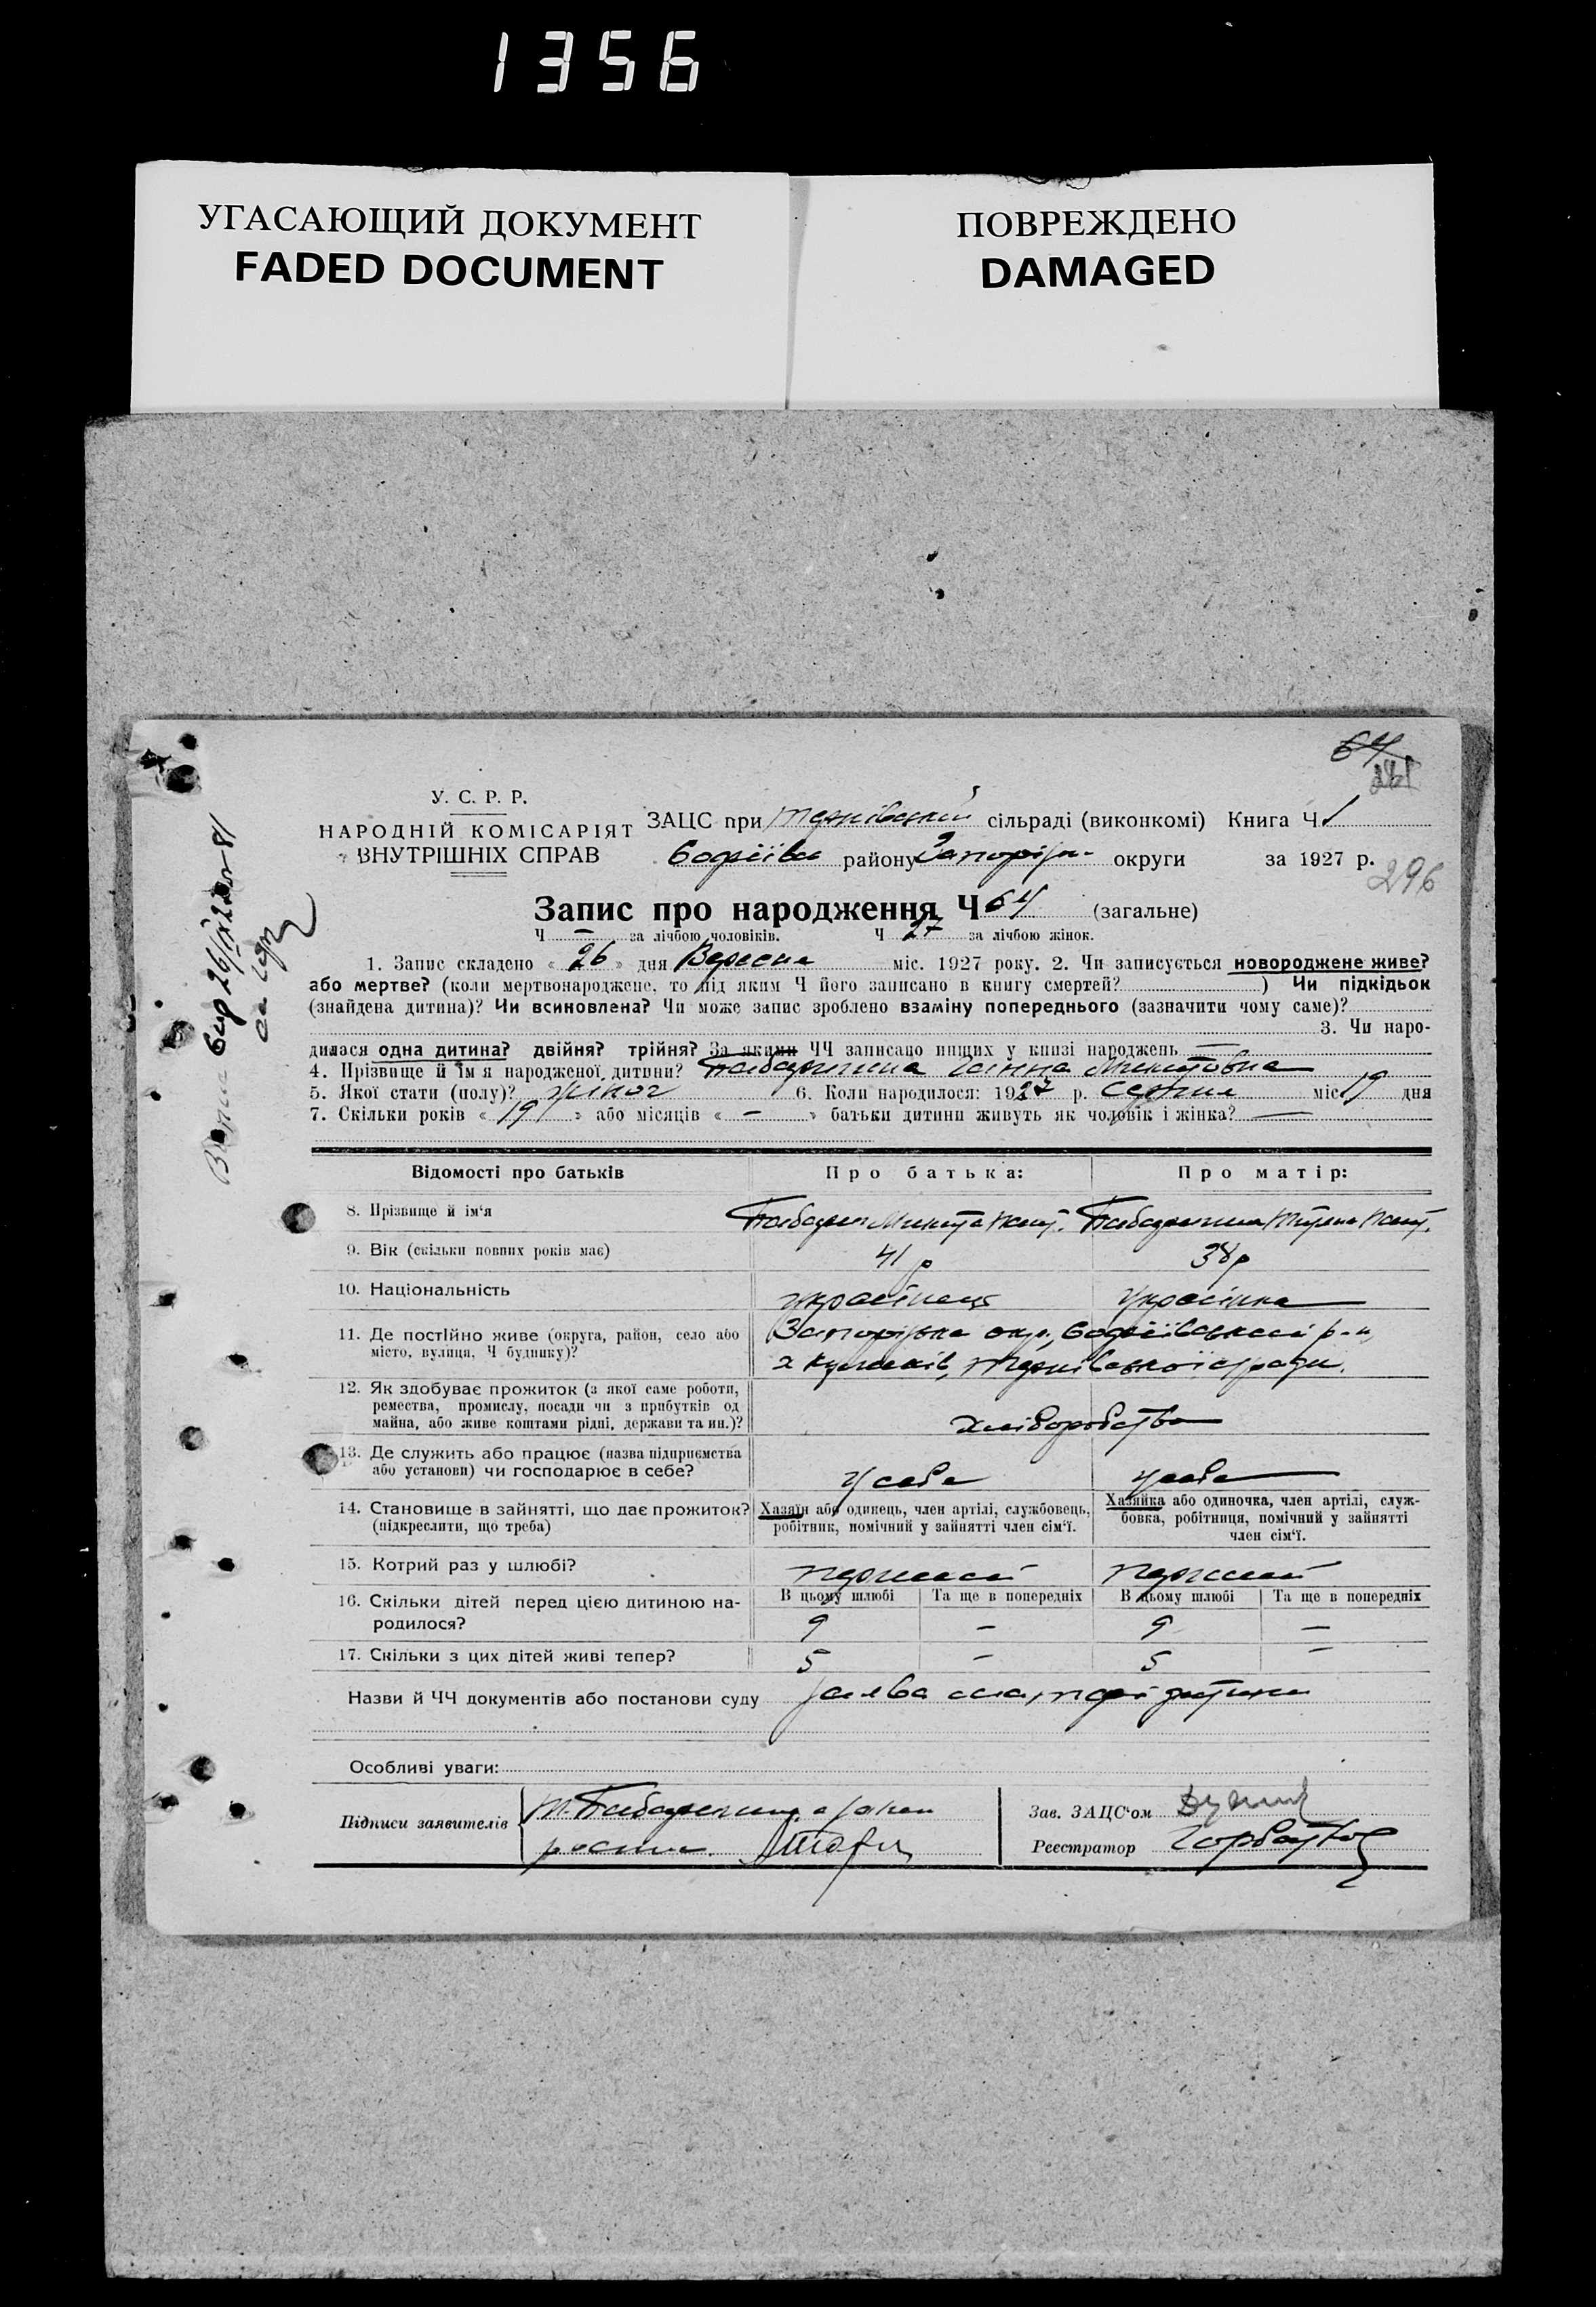 1356
УГАСАЮЩИЙ ДОКУМЕНТ
FADED DOCUMENT
ПОВРЕЖДЕНО
DAMAGED
64
296
У. С. Р. Р.
НАРОДНІЙ КОМІСАРІЯТ
ВНУТРІШНІХ СПРАВ
ЗАЦС при Тернівській сільраді (виконкомі) Книга Ч 1
району округи за 1927 р.
Запис про народження Ч 64 (загальне)
Ч — за лічбою чоловіків. Ч 27 за лічбою жінок.
1. Запис складено « 26 » дня Вересня міс. 1927 року. 2. Чи записується новороджене живе?
або мертве? (коли мертвонароджене, то під яким Ч його записано в книгу смертей? ) Чи підкідьок
(знайдена дитина)? Чи всиновлена? Чи може запис зроблено взаміну попереднього (зазначити чому саме)?
3. Чи наро-
дилася одна дитина? двійня? трійня? За якими ЧЧ записано инших у книзі народжень —
4. Прізвище й ім'я народженої дитини? Ганна Микитовна
5. Якої стати (полу)? жіноч 6. Коли народилося: 1927 р. Серпня міс. 19 дня
7. Скільки років « 19 » або місяців « — » батьки дитини живуть як чоловік і жінка? —
Відомості про батьків
Про батька:
Про матір:
8. Прізвище й ім'я
Микита
9. Вік (скільки повних років має)
41 р
38 р
10. Національність
українець
українка
11. Де постійно живе (округа, район, село або
місто, вулиця, Ч будинку)?
Запорізька окр,
Тернівської с/ради.
12. Як здобуває прожиток (з якої саме роботи,
ремества, промислу, посади чи з прибутків од
майна, або живе коштами рідні, держави та ин.)?
Хліборобство
13. Де служить або працює (назва підприємства
або установи) чи господарює в себе?
У себе
У себе
14. Становище в зайнятті, що дає прожиток?
(підкреслити, що треба)
Хазяїн або одинець, член артілі, службовець,
робітник, помічний у зайнятті член сім'ї.
Хазяйка або одиночка, член артілі, служ-
бовка, робітниця, помічний у зайнятті
член сім'ї.
15. Котрий раз у шлюбі?
перший
перший
16. Скільки дітей перед цією дитиною на-
родилося?
В цьому шлюбі
Та ще в попередніх
В цьому шлюбі
Та ще в попередніх
9 — 9 —
17. Скільки з цих дітей живі тепер?
5 — 5 —
Назви й ЧЧ документів або постанови суду
заява матері дитини
Особливі уваги:
Підписи заявителів
Зав. ЗАЦС'ом
Реєстратор